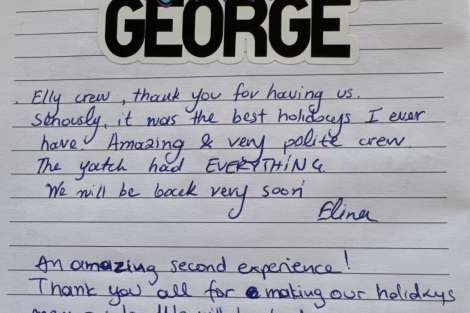 GEORGE
Elly crew, thank you for having us.
Seriously, it was the best holidays I ever
have! Amazing & very polite crew.
The yatch had EVERYTHING.
We will be back very soon
Elina
An amazing second experience!
Thank you all for making our holidays